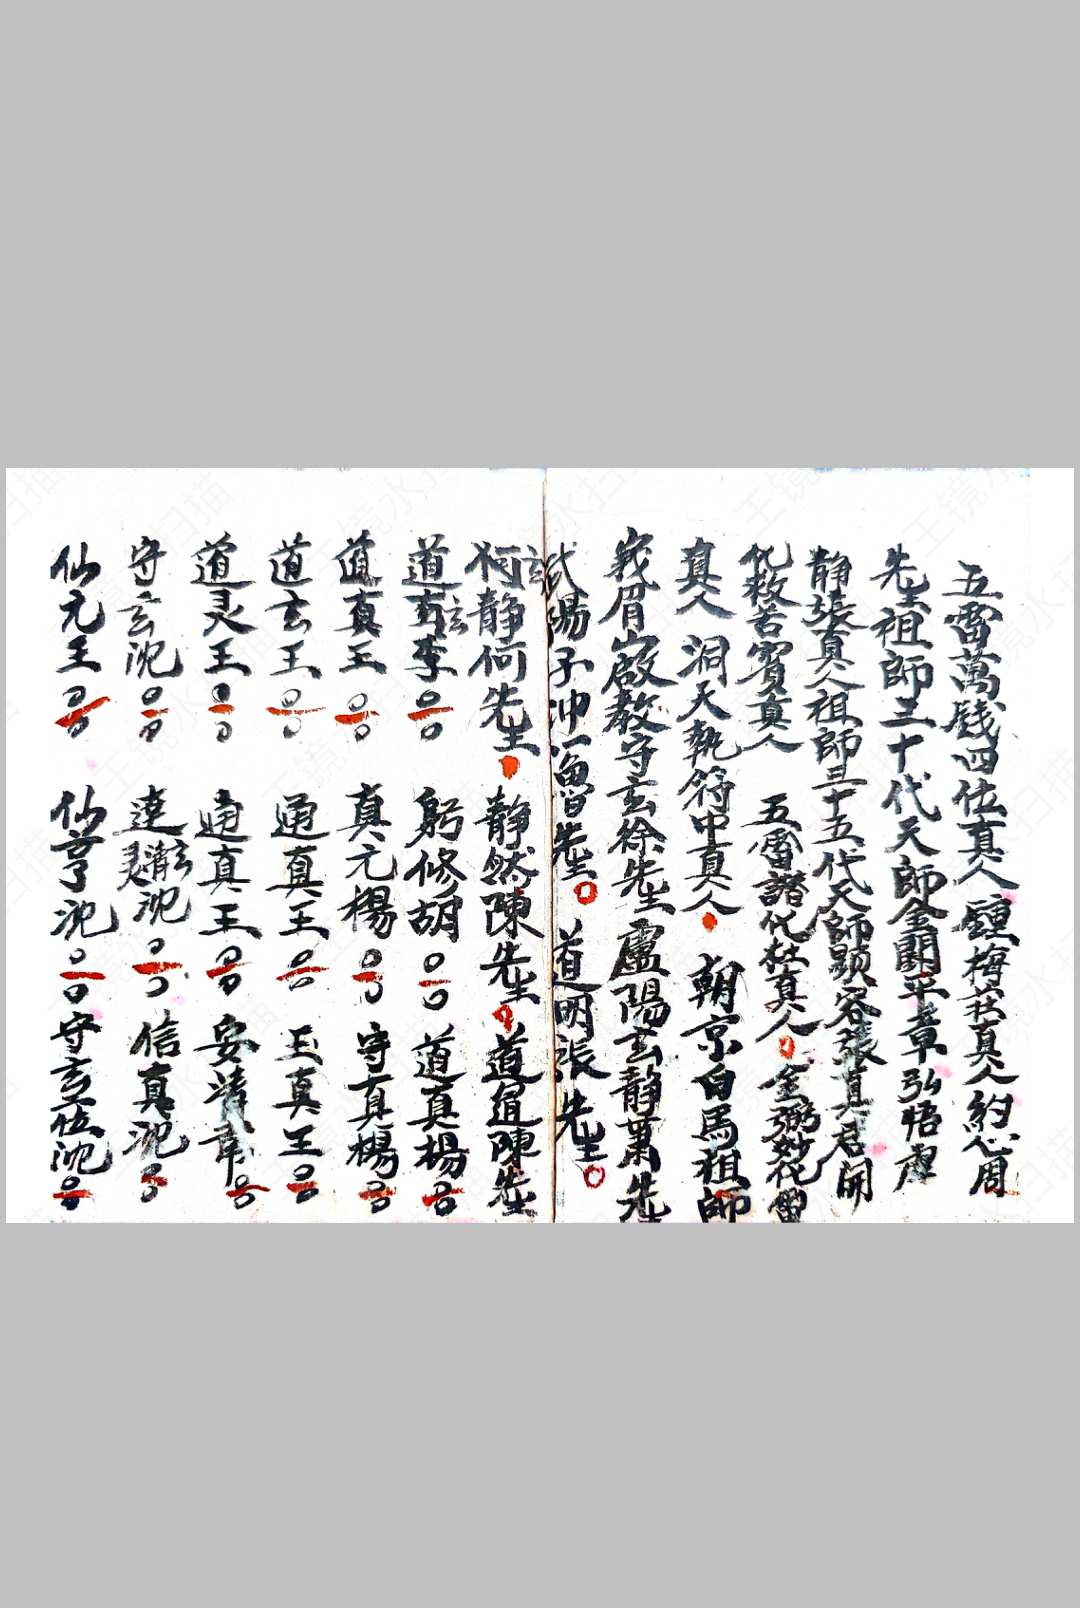 五雷萬錢四位真人鍾梅英真人約心周
先生祖師三十代天師金闕平章弘悟虚
静張真人祖師三十五代天師顕容張真君開
化救苦寳真人 五雷諸代杜真人 金弼妙代雷
真人 洞天執符中真人 朝宗白馬祖師
峩眉啟教守玄徐先生盧陽玄静萧先生
陽子冲曾先生 道明張先生
何静何先生 静然陳先生 道道陳先生
道玄李 躬修胡 道真楊
道真王 真元楊 守真楊
道玄王 通真王 玉真王
道灵王 通真王 安清韦
守玄沈 達沈 信真沈
仙元王 仙亨沈 守玄位沈